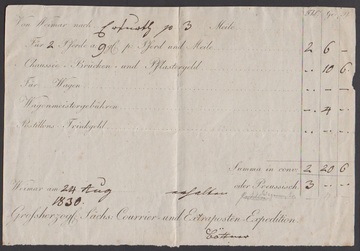 Von Weimar nach Erfurth p 3 Meile
Für 2 Pferde a 9 gl. p. Pferd und Meile 2 6 -
Chaussee-Brücken-und Pflastergeld - 10 6
Für Wagen - - -
Wagenmeistergebühren - 4 -
Postillons Trinkgeld - - -
Summa in conv. 2 20 6
Weimar am 24 Aug oder Preussisch 3 - -
1830. erhalten
Grossherzogl. Sächs. Courrier und Extraposten Expedition